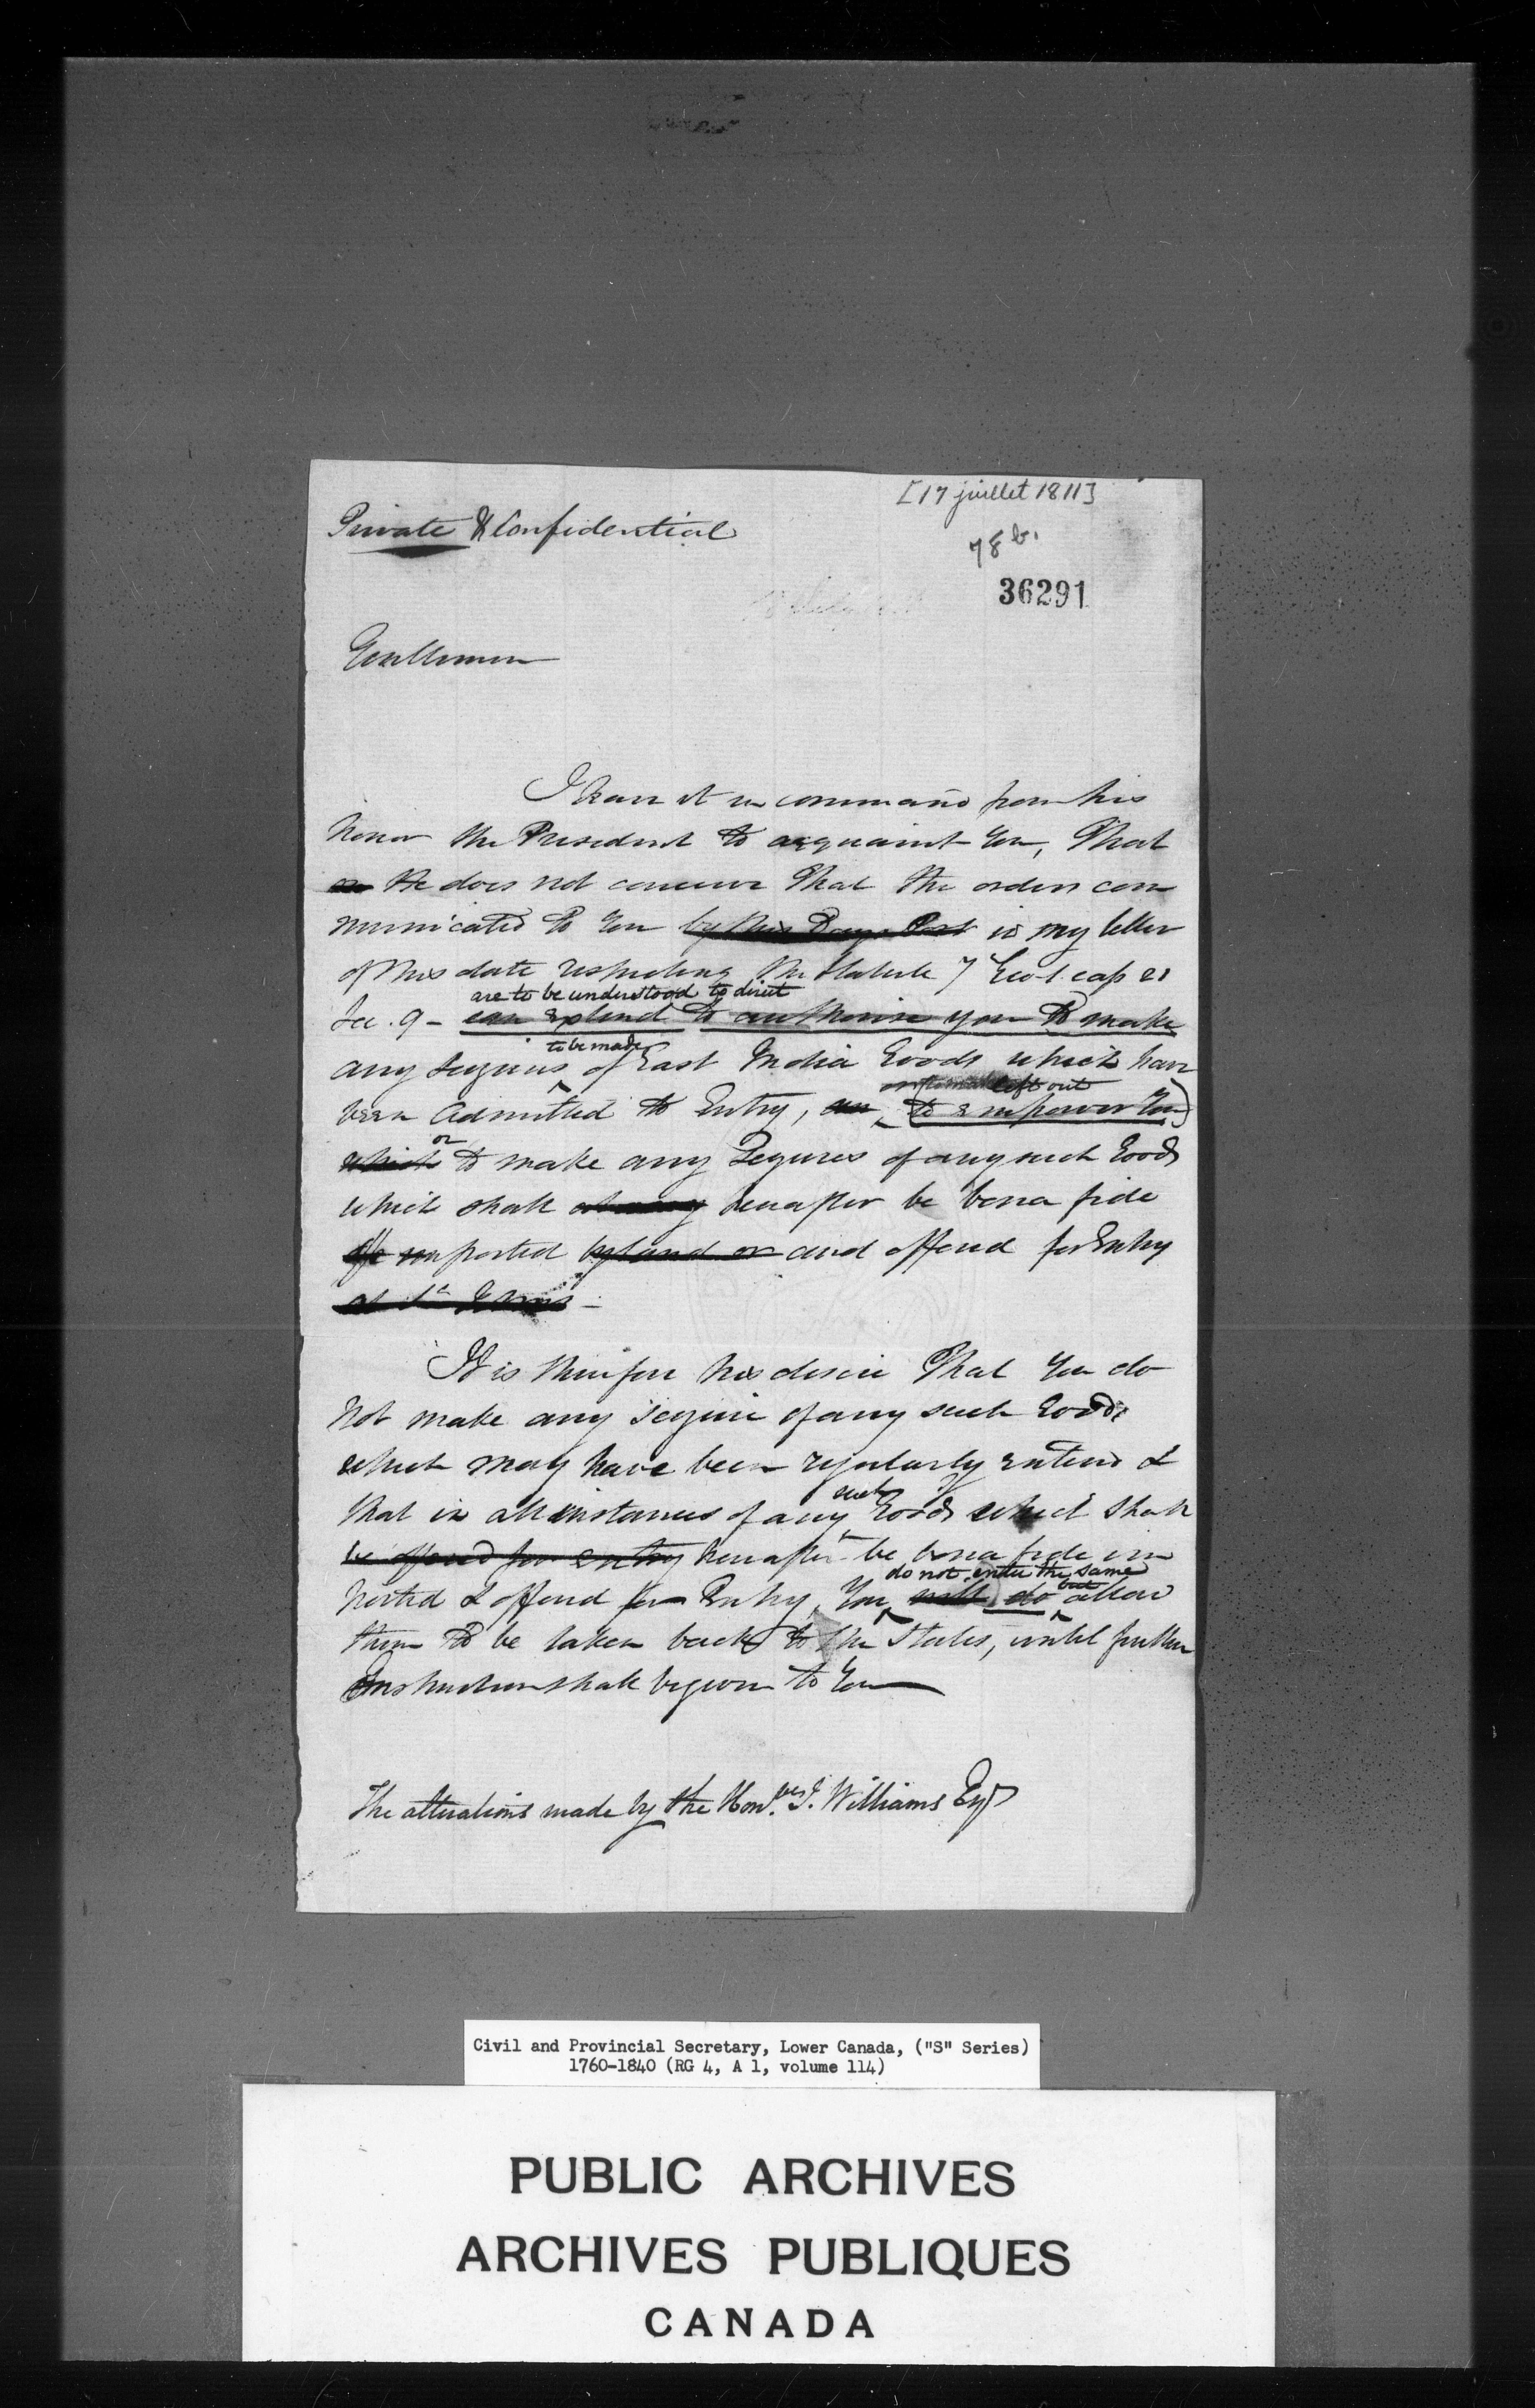 [17 juillet 1811]
Private & Confidential
78 b.
36291
Gentlemen
I have it in command from his
honor the President to acquaint You, That
He does not conceive That the orders com
municated to You by this Days Post in my letter
of this date respecting the Statute 7 Geo. 1. cap 21
are to be understood to direct
Sec. 9 - can extend to authorise you to make
to be made
any seizures of East India Goods which have
left out
been admitted to Entry, (to empower You)
or
which to make any Seizures of any such Goods
which shall hereafter be bona fide
imported by land or and offered for Entry
at St. Johns -
It is therefore his desire That You do
not make any seizure of any such Goods
which may have been regularly entered &
such
that in all instances of any Goods which shall
be offered for entry hereafter be bona fide im
do not enter the same
but
ported & offered for Entry, You will do allow
them to be taken back to the States, until further
Instructions shall be given to You
The alterations made by the Honbles J. Williams Esqr
Civil and Provincial Secretary, Lower Canada, ("S" Series)
1760-1840 (RG 4, A 1, volume 114)
PUBLIC ARCHIVES
ARCHIVES PUBLIQUES
CANADA